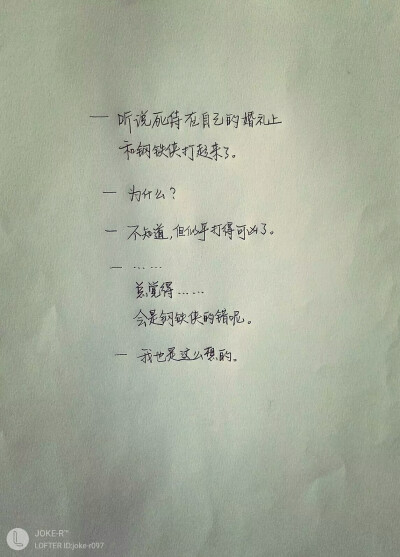 — 听说死侍在自己的婚礼上
和钢铁侠打起来了。
— 为什么？
— 不知道，但似乎打得可凶了。
— ……
总觉得……
会是钢铁侠的错呢。
— 我也是这么想的。
JOKE-R™
LOFTER ID:joke-r097